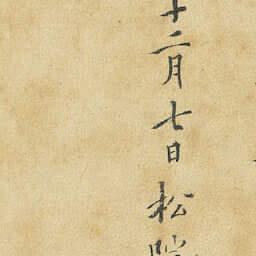 十二月七日松